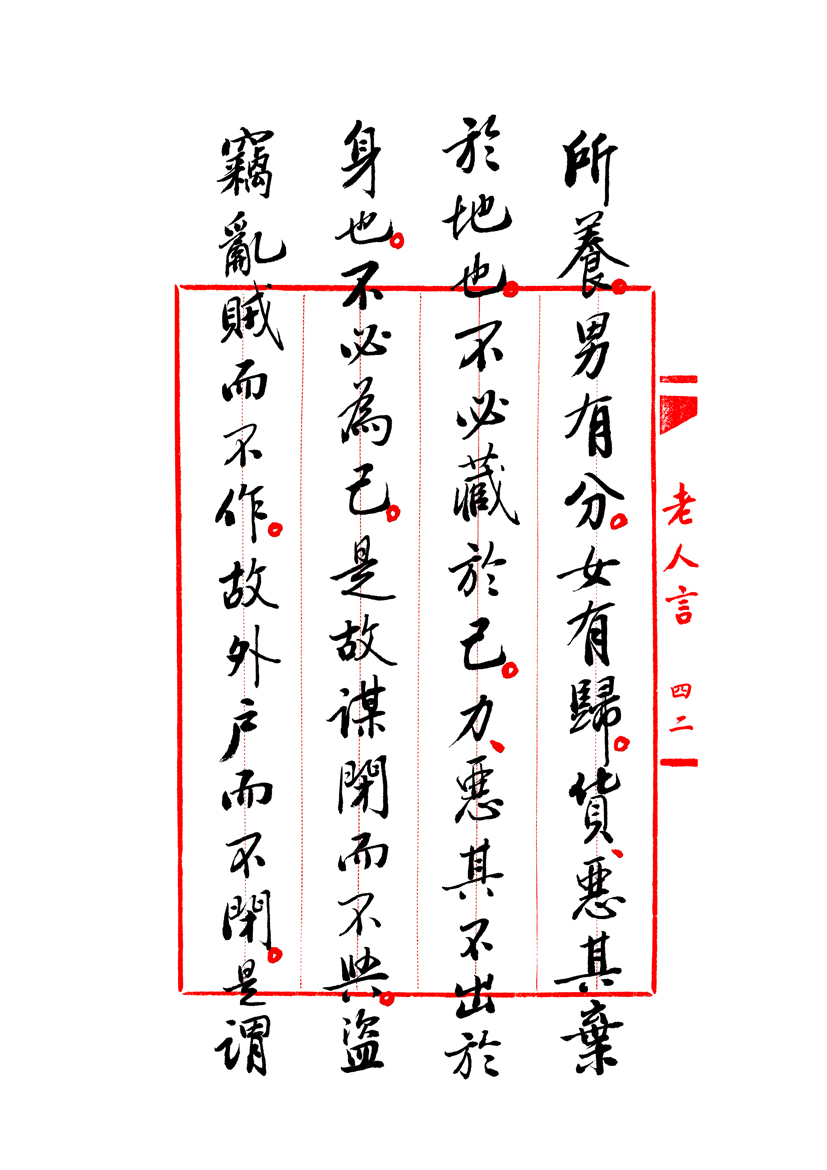 老人言 四二
所養。男有分。女有歸。貨、惡其棄
於地也。不必藏於己。力、惡其不出於
身也。不必為己。是故謀閉而不興。盜
竊亂賊而不作。故外戶而不閉。是謂